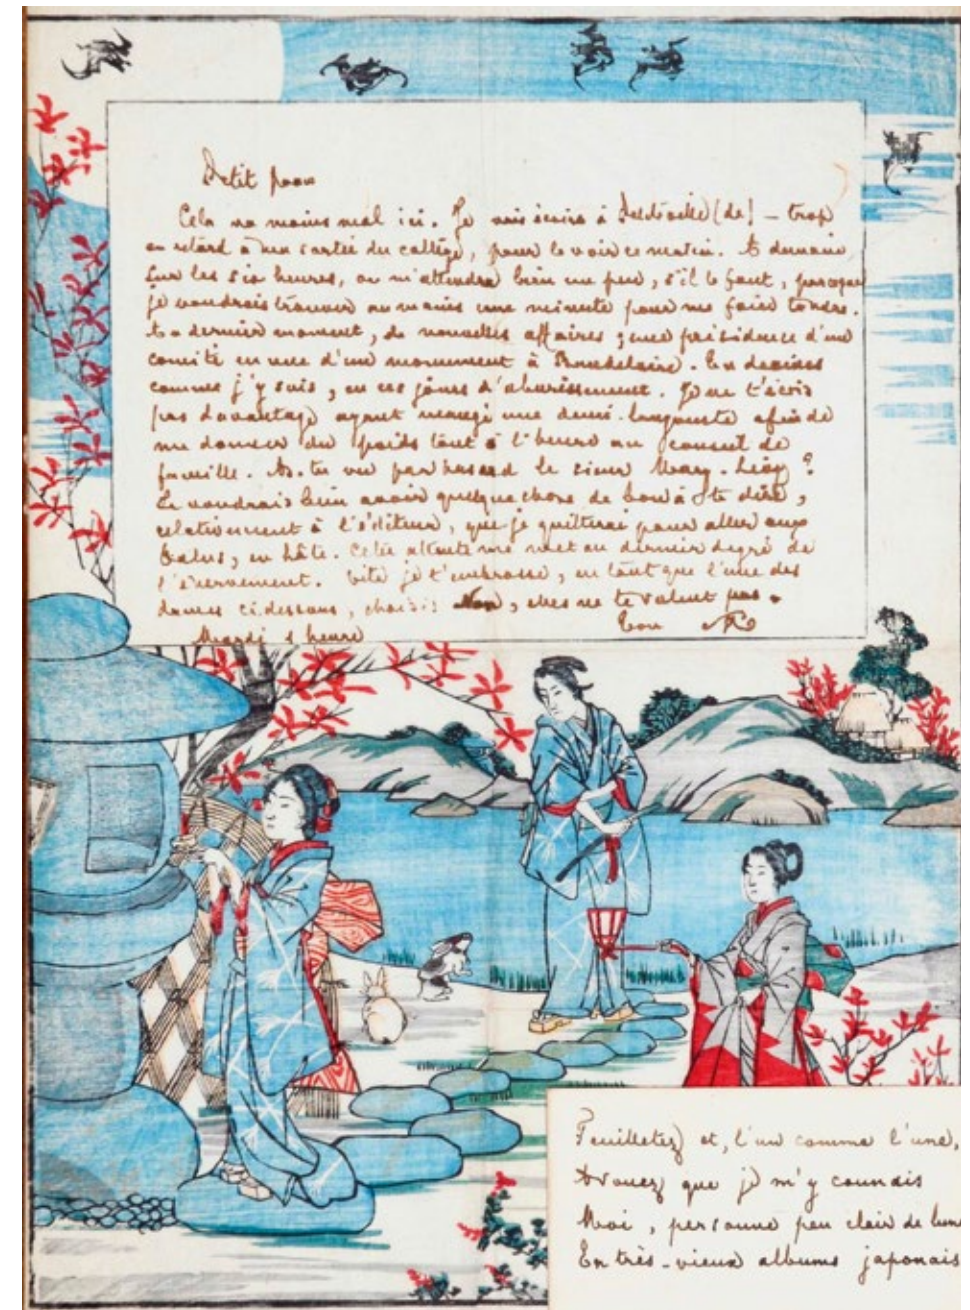 Petit paon
Cela va moins mal ici. Je vais écrire à [de] — trop
en retard à ma sortie du collège, pour le voir ce matin. A demain
sur les six heures, on m'attendra bien un peu, s'il le faut, parceque
je voudrais trouver au moins une minute pour me faire tondre.
Au dernier moment, de nouvelles affaires ; une présidence d'un
comité en vue d'un monument à Baudelaire. Tu devines
comme j'y suis, en ces jours d'ahurissement. Je ne t'écris
pas davantage ayant mangé une demi-langouste afin de
me donner du poids tout à l'heure au conseil de
famille. As-tu vu par hasard le sieur ?
Je voudrais bien avoir quelque chose de bon à te dire,
relativement à l'éditeur, que je quitterai pour aller aux
Talus, en hâte. Cette attente me met au dernier degré de
l'énervement. Vite je t'embrasse, en tant que l'une des
dames ci-dessous, choisis Non, elles ne te valent pas.
Ton
Mardi 1 heure
Feuilletez et, l'un comme l'une,
Avouez que je m'y connais
Moi, personne peu clair de lune
En très-vieux albums japonais